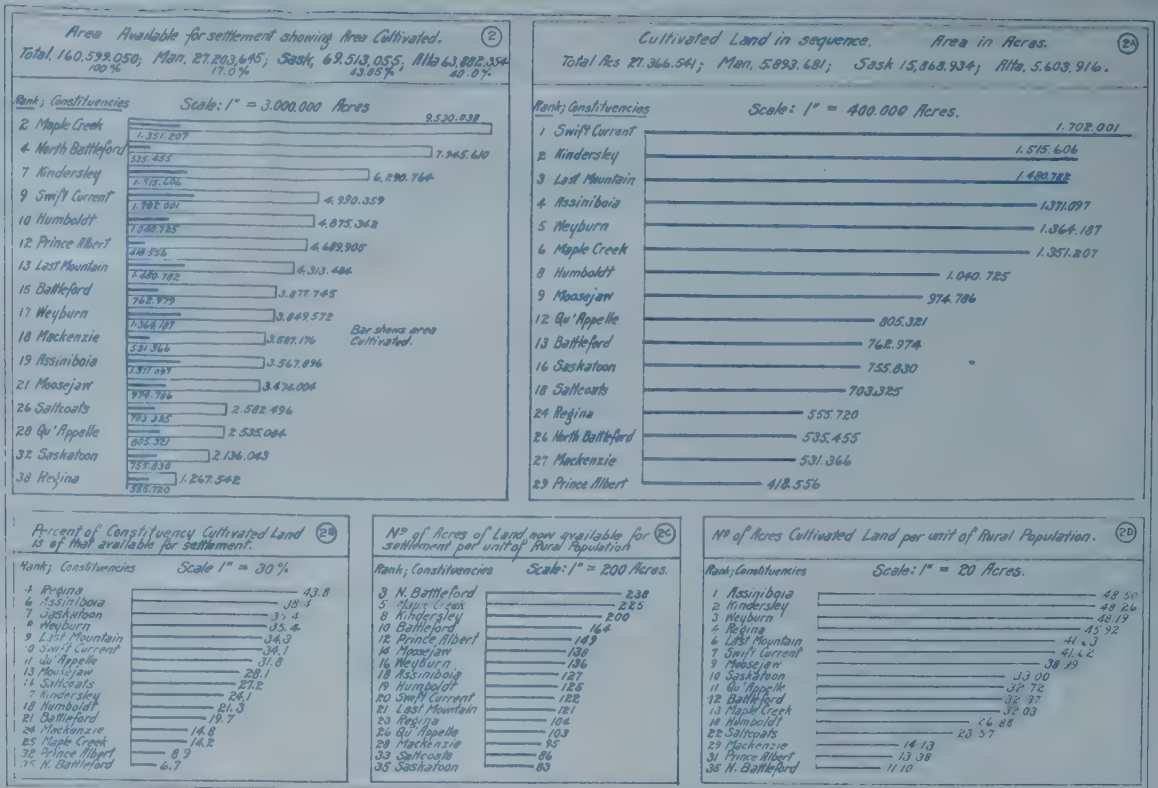 Area Available for settlement showing Area Cultivated. 2
Total. 160.599.050; Man. 27.203,645; Sask. 69.513,055; Alta 63,882,354
100% 17.0% 43.05% 40.0%
Rank; Constituencies Scale: 1" = 3.000.000 Acres
2 Maple Creek 9.530.038
1.351.207
4 North Battleford 7.945.610
535.455
7 Kindersley 6,290.764
1.515.606
9 Swift Current 4,990.359
1.702.001
10 Humboldt 4,875,342
1.040.725
12 Prince Albert 4,689,905
418.556
13 Last Mountain 4,313.484
1.480.782
15 Battleford 3.877.745
762.979
17 Weyburn 3.849.572
1.364.187
18 Mackenzie 3.587.176
531.366
Bar shows area
Cultivated.
19 Assiniboia 3.567.896
1.371.097
21 Moosejaw 3.474.004
974.786
26 Saltcoats 2.582.496
703.325
28 Qu'Appelle 2.535.084
805.321
32 Saskatoon 2.136.043
755.830
38 Regina 1.267.542
555.720
Cultivated Land in sequence. Area in Acres. 2A
Total Acs 27.366.541; Man. 5.893.681; Sask 15,868.934; Alta. 5.603,916.
Rank; Constituencies Scale: 1" = 400.000 Acres.
1 Swift Current 1.702.001
2 Kindersley 1.515.606
3 Last Mountain 1.480.782
4 Assiniboia 1371.097
5 Weyburn 1.364.187
6 Maple Creek 1.351.207
8 Humboldt 1.040.725
9 Moosejaw 974.786
12 Qu'Appelle 805.321
13 Battleford 762.974
16 Saskatoon 755.830
18 Saltcoats 703.325
24 Regina 555.720
26 North Battleford 535.455
27 Mackenzie 531.366
29 Prince Albert 418.556
Percent of Constituency Cultivated Land 2B
is of that available for settlement.
Rank; Constituencies Scale 1" = 30%
Regina 43.8
6 Assiniboia
7 Saskatoon
8 Weyburn 35.4
9 Last Mountain 34.3
Swift Current 34.1
Qu'Appelle 31.8
13 Moosejaw 28.1
Saltcoats 27.2
Kindersley 24.1
18 Humboldt 21.3
21 Battleford 19.7
24 Mackenzie 14.8
25 Maple Creek 14.2
32 Prince Albert 8.9
35 N. Battleford 6.7
Nº of Acres of Land now available for 2C
settlement per unit of Rural Population
Rank; Constituencies Scale: 1" = 200 Acres.
3 N. Battleford 238
5 Maple Creek 225
8 Kindersley 200
10 Battleford 164
12 Prince Albert 149
14 Moosejaw 138
16 Weyburn 136
18 Assiniboia 127
19 Humboldt 125
20 Swift Current 122
21 Last Mountain 121
23 Regina 104
26 Qu'Appelle 103
28 Mackenzie 95
33 Saltcoats 86
35 Saskatoon 83
Nº of Acres Cultivated Land per unit of Rural Population. 2D
Rank; Constituencies Scale: 1" = 20 Acres.
1 Assiniboia 48.50
2 Kindersley 48.26
3 Weyburn 48.19
4 Regina 45.92
6 Last Mountain
7 Swift Current
9 Moosejaw
10 Saskatoon 33.00
11 Qu'Appelle 32.72
12 Battleford
13 Maple Creek 32.03
18 Humboldt 26.88
22 Saltcoats 23.57
29 Mackenzie 14.13
31 Prince Albert 13.38
36 N. Battleford 11.10